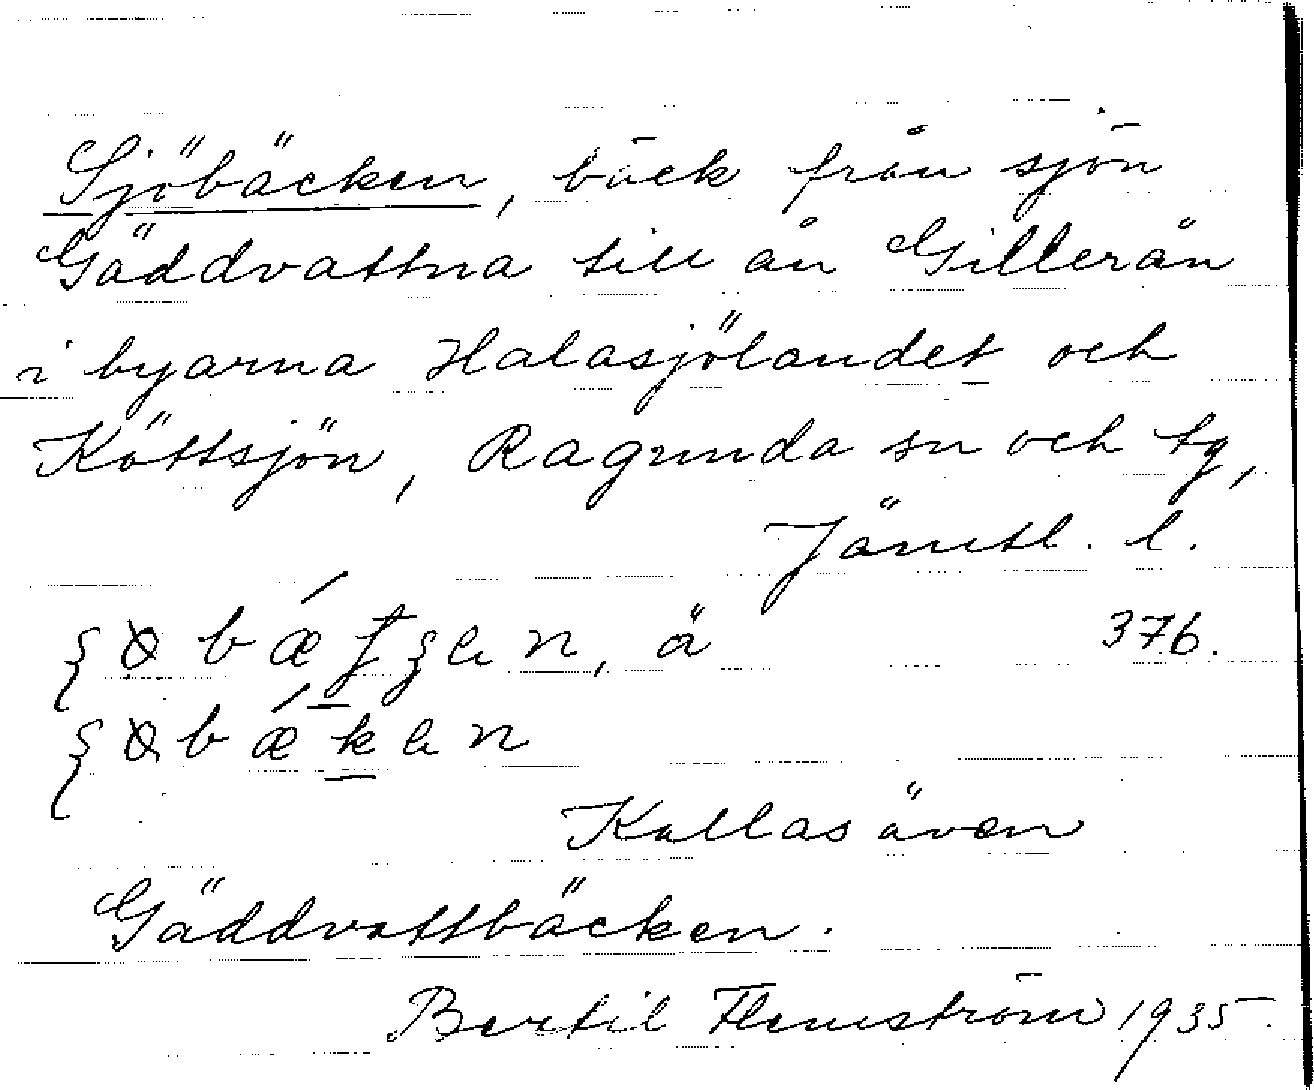 Sjöbäcken, bäck från sjön
Gäddvattna till ån Gillerån
i byarna Halasjölandet och
Köttsjön, Ragunda sn och tg,
Jämtl. l.
376.
Kallas även
Gäddvattbäcken.
Bertil Flemström 1935.